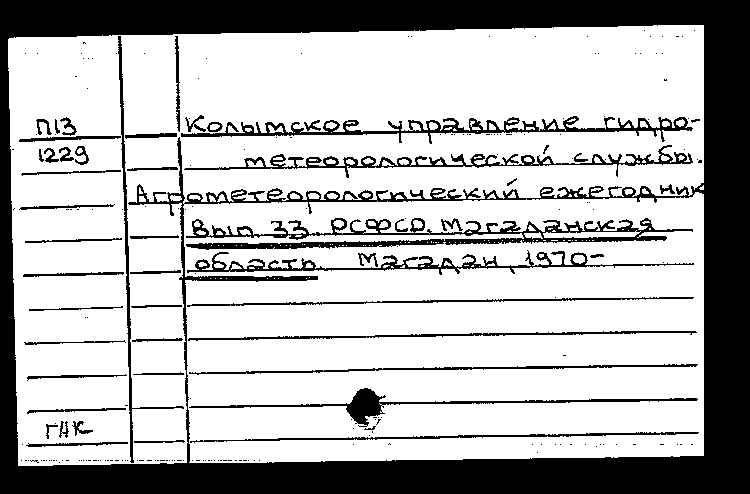 П13 Колымское управление гидро-
1229 метеорологической службы.
Агрометеорологический ежегодник
Вып. 33. РСФСР. Магаданская
область. Магадан, 1970-
ГНК